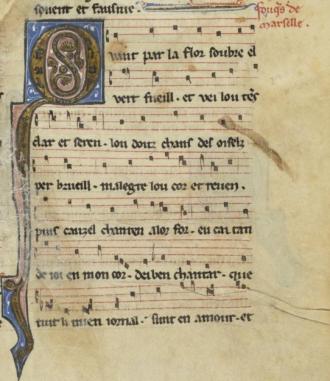 souent et fausure
forqs de
marselle.
Quant par la flor soubre el
vert fueill. et vei lou tes
clar et seren. lou douz chans des oiselz
per brueill. malegre lou cor et reuen.
puis cauzel chanten alor for. eu cai tan
de ioi en mon cor. dei ben chantar. que
tuit li mien iornal. sunt en amour. et